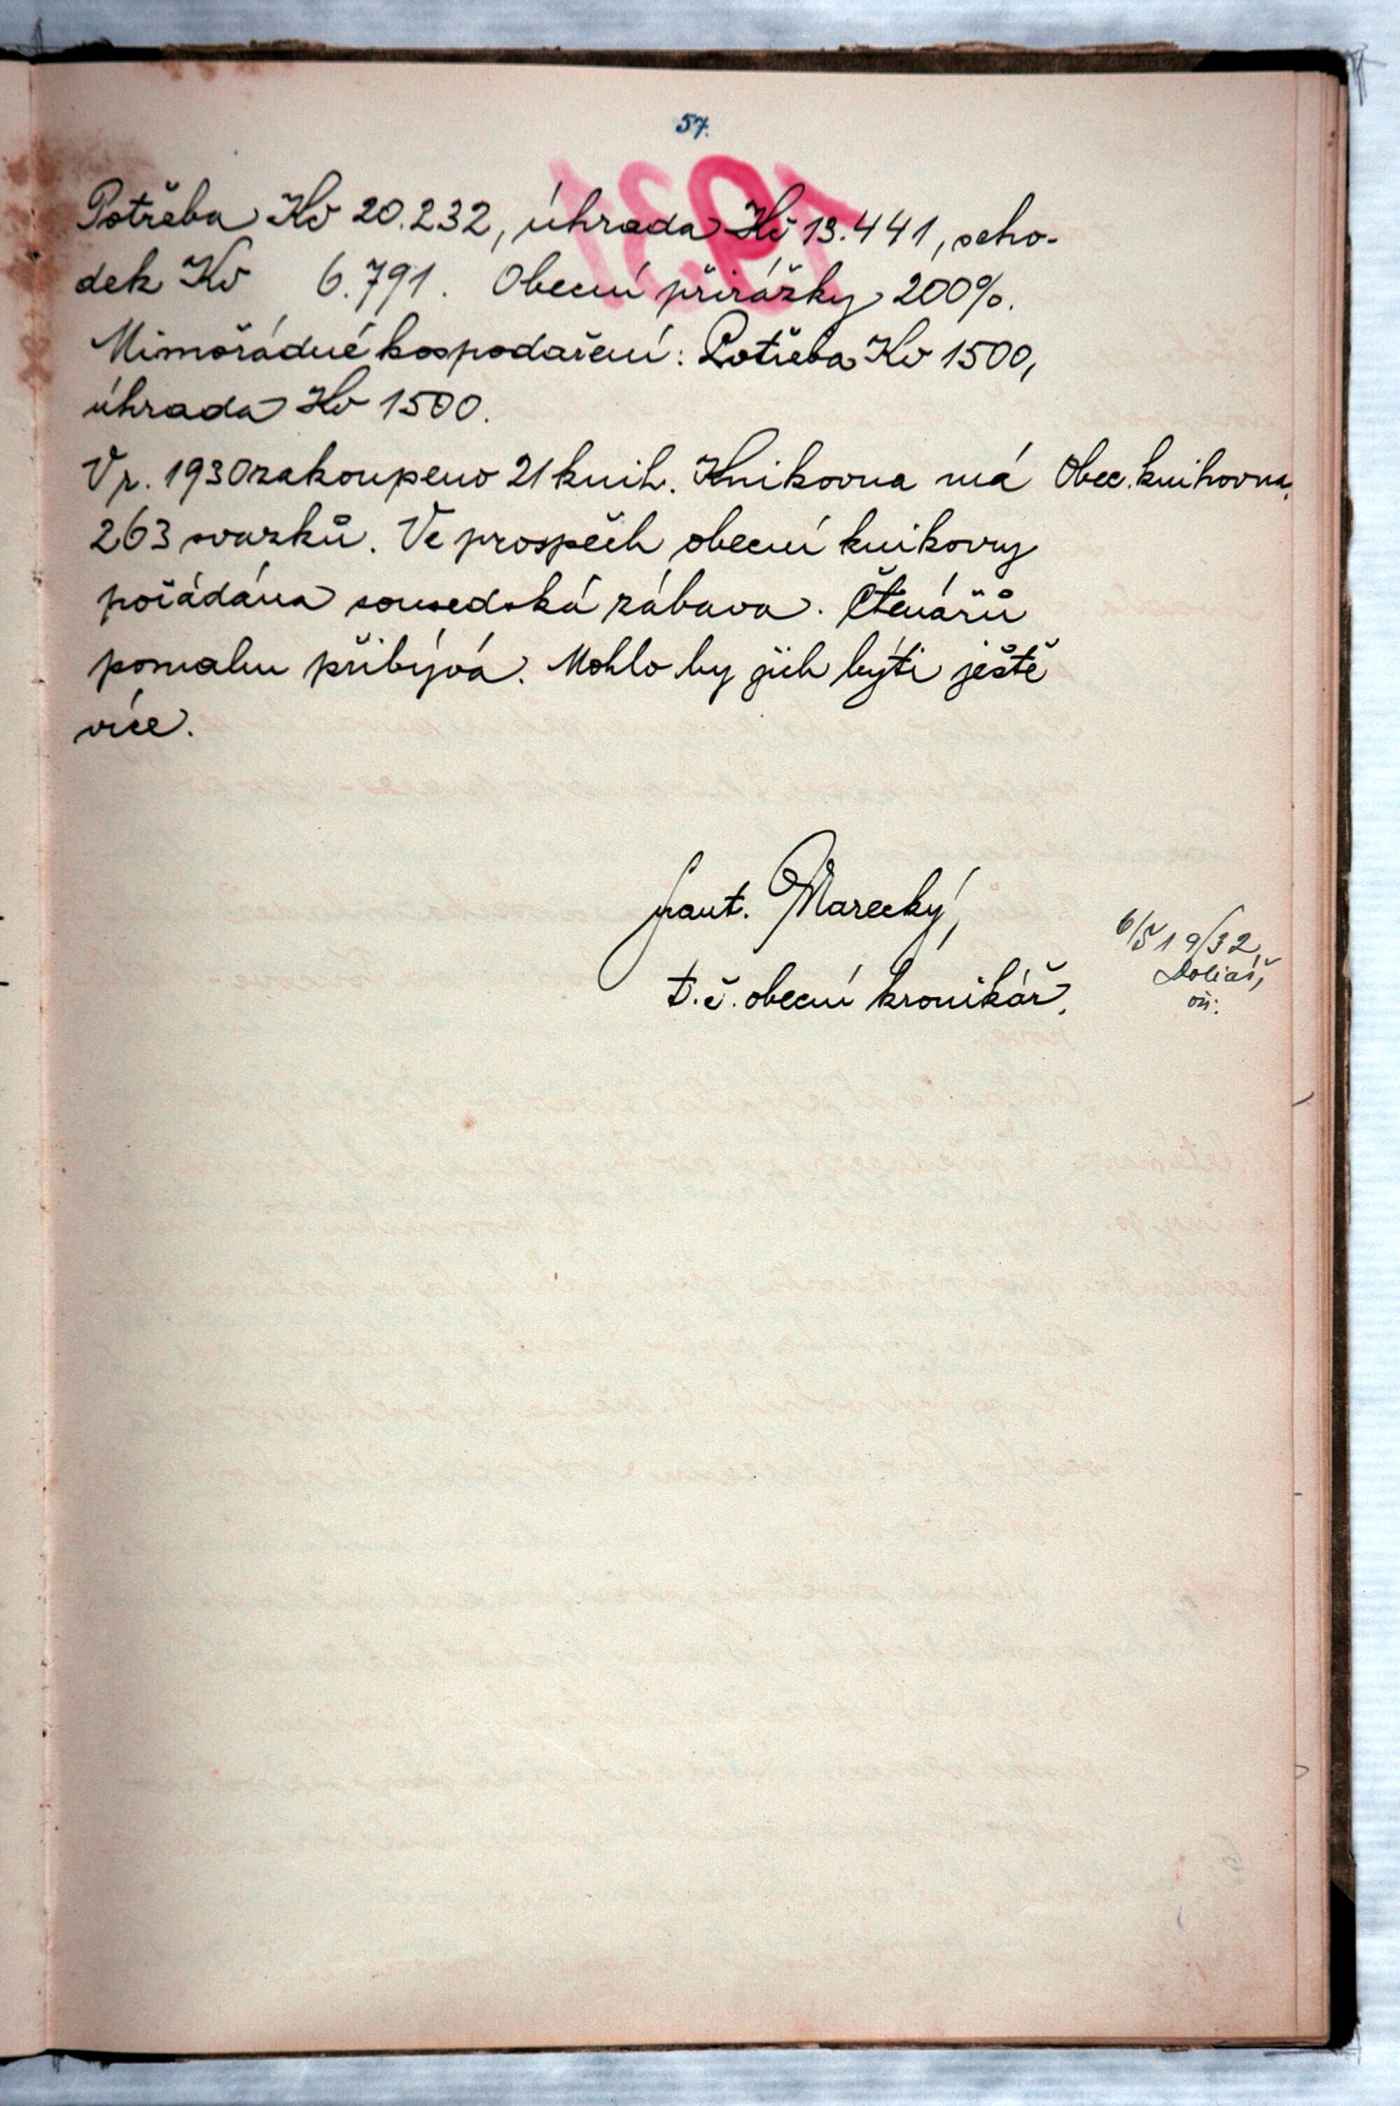 57.
Potřeba Kč 20.232, úhrada Kč 13.441, scho-
dek Kč 6.791. Obecní přirážky 200%.
Mimořádné hospodaření: Potřeba Kč 1500,
úhrada Kč 1500.
V r. 1930 zakoupeno 21 knih. Knihovna má
Obec. knihovna.
263 svazků. Ve prospěch obecní knihovny
pořádána sousedská zábava. Čtenářů
pomalu přibývá. Mohlo by jich býti ještě
více.
Frant. Marecký,
t. č. obecní kronikář.
6/5 19/32